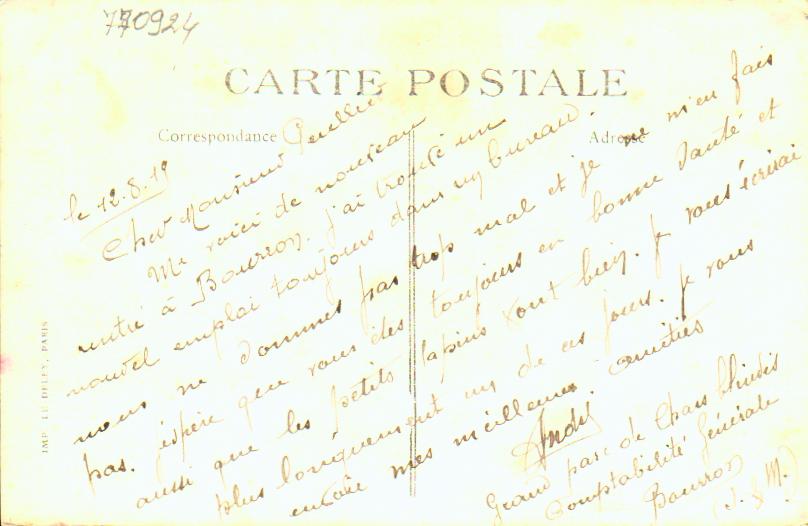 770924
CARTE POSTALE
Correspondance
Adresse
le 12.8.19
Cher Monsieur
Me voici de nouveau
rentré à Bourron, j'ai trouvé un
nouvel emploi toujours dans un bureau.
nous ne sommes pas trop mal et je ne m'en fais
pas. j'espère que vous êtes toujours en bonne santé et
aussi que les petits lapins vont bien. je vous écrirai
plus longuement un de ces jours. je vous
envoie mes meilleures amitiés
André
Grand parc de Chars blindés
Comptabilité Générale
Bourron
(S. & M.)
IMP. LE DELEY, PARIS